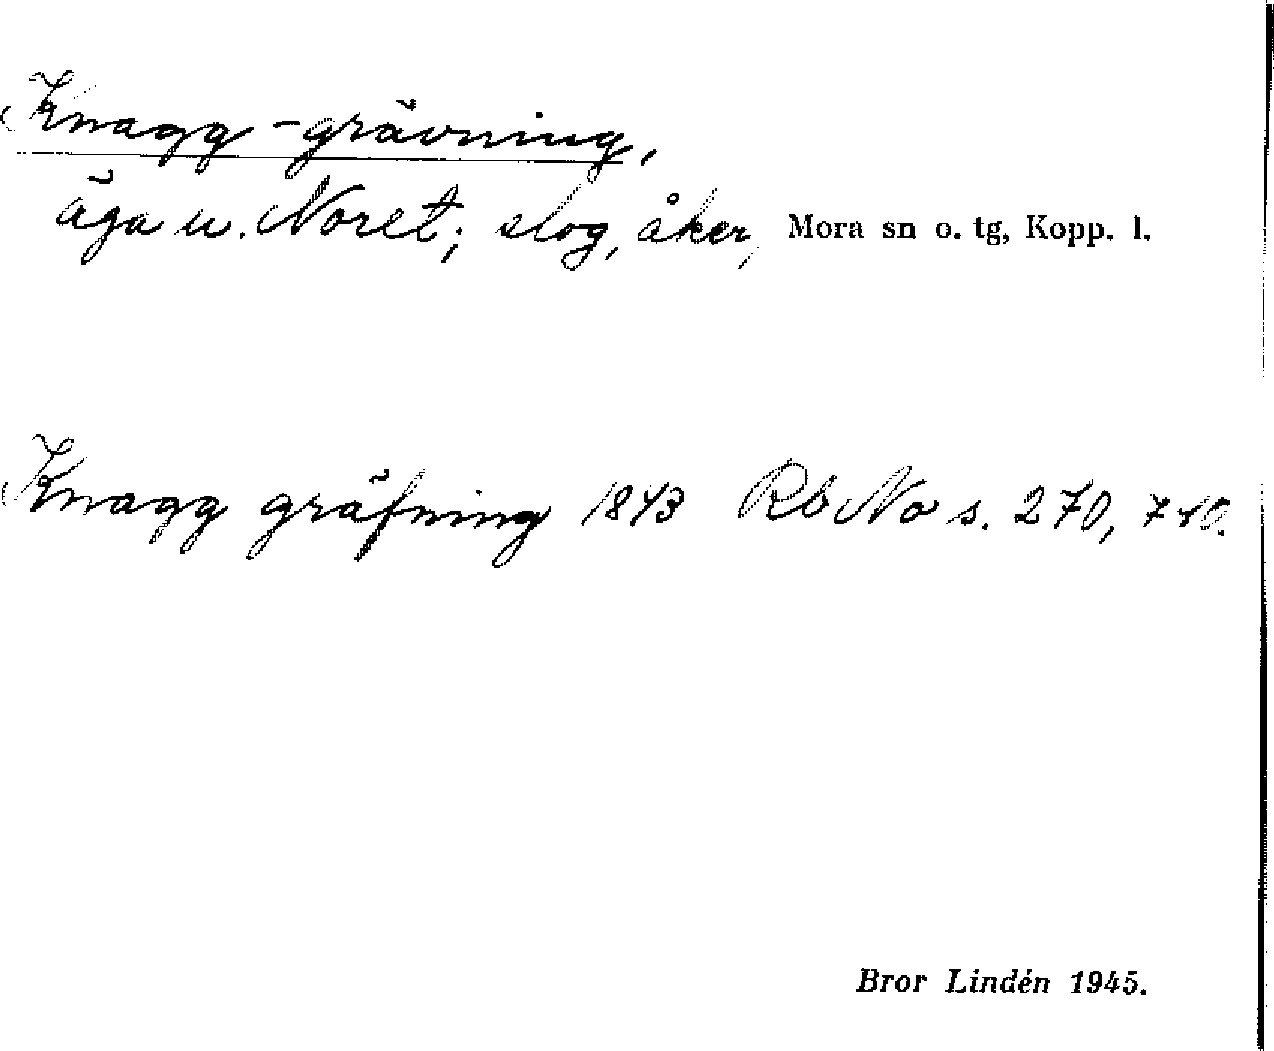 Knagg-grävning,
äga u. Noret; slog, åker, Mora sn o. tg, Kopp. l.
Knagg gräfning 1843 Rb No s. 270, 740.
Bror Lindén 1945.